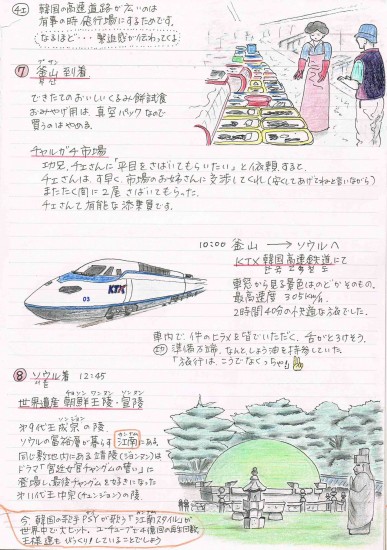 ④エ 韓国の高速道路が広いのは
有事の時 飛行場にするためです。
なるほど・・・緊迫感が伝わってくる
⑦ 釜山到着
プサン
できたてのおいしいくるみ餅試食
おみやげ用は、真空パックなので
買うのはやめる。
チャルガチ市場
功兄、チェさんに「平目をさばいてもらいたい」と依頼すると、
チェさんは、す早く、市場のお姉さんに交渉してくれ(安くしてあげてねと言いながら)
またたく間に2尾さばいてもらった。
チェさんて有能な添乗員です。
10:00 釜山 → ソウルへ
KTX 韓国高速鉄道にて
車窓から見る景色はのどかそのもの。
最高速度 305km/h.
2時間40分の快適な旅でした。
KTX
03
車内で、件のヒラメを皆でいただく、舌がとろけそう。
準備万端、なんとしょう油を持参していた。
「旅行は、こうでなくっちゃ」
⑧ ソウル着 12:45
世界遺産 朝鮮王陵・宣陵
チョソン ワンヌン ソンヌン
ソンジョン
第9代王成宗の陵。
カンナム
ソウルの富裕層が暮らす江南にある。
同じ敷地内にある靖陵(ジョンヌン)は
ドラマ「宮廷女官チャングムの誓い」に
登場し、最後チャングムを好きになった
第11代王中宗(チュンジョン)の陵。
今、韓国の歌手PSYが歌う「江南スタイル」が
世界中で大ヒット、ユーチューブで4億回の再生回数
王様達もびっくりしていることでしょう